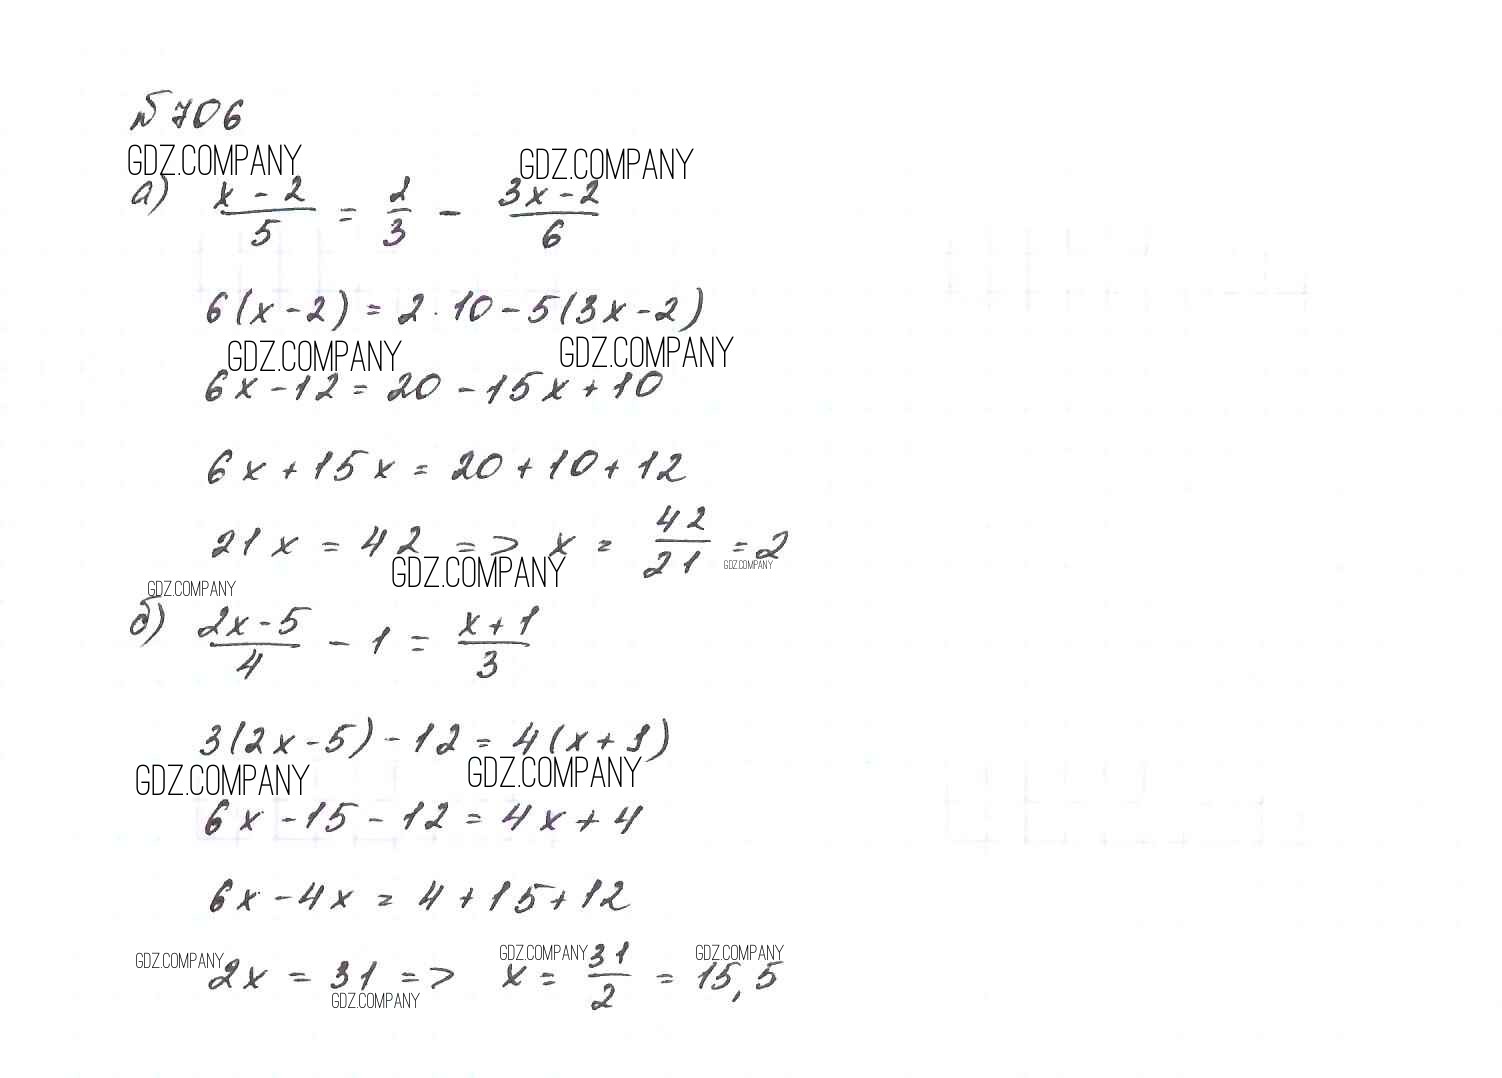 №706
GDZ.COMPANY GDZ.COMPANY
а) (x-2)/5 = 2/3 - (3x-2)/6
6(x-2) = 2·10-5(3x-2)
GDZ.COMPANY GDZ.COMPANY
6x-12 = 20-15x+10
6x+15x = 20+10+12
21x = 42 => x = 42/21 = 2
GDZ.COMPANY GDZ.COMPANY
GDZ.COMPANY
б) (2x-5)/4 - 1 = (x+1)/3
3(2x-5)-12 = 4(x+1)
GDZ.COMPANY GDZ.COMPANY
6x-15-12 = 4x+4
6x-4x = 4+15+12
GDZ.COMPANY GDZ.COMPANY GDZ.COMPANY
2x = 31 => x = 31/2 = 15,5
GDZ.COMPANY